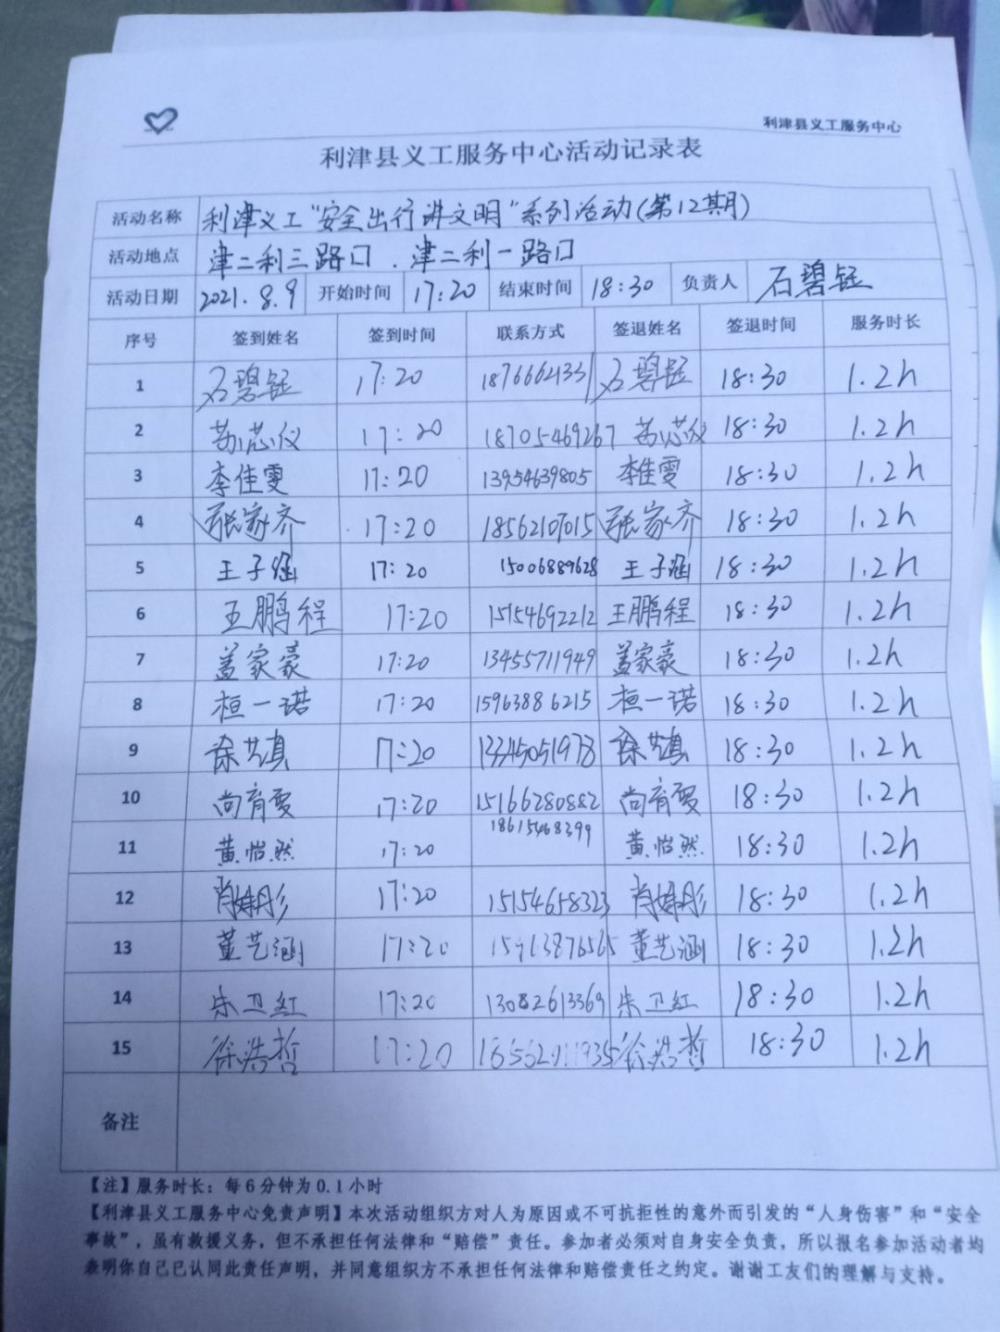 利津县义工服务中心
利津县义工服务中心活动记录表
活动名称 利津义工“安全出行讲文明”系列活动(第12期)
活动地点 津二利三路口.津二利一路口
活动日期 2021.8.9 开始时间 17:20 结束时间 18:30 负责人 石碧钰
序号 签到姓名 签到时间 联系方式 签退姓名 签退时间 服务时长
1 石碧钰 17:20 石碧钰 18:30 1.2h
2 苏芯仪 17:20 18705469267 苏芯仪 18:30 1.2h
3 李佳雯 17:20 13954639805 李佳雯 18:30 1.2h
4 张家齐 17:20 18562107015 张家齐 18:30 1.2h
5 王子涵 17:20 15006889628 王子涵 18:30 1.2h
6 王鹏程 17:20 15154692212 王鹏程 18:30 1.2h
7 盖家豪 17:20 13455711949 盖家豪 18:30 1.2h
8 桓一诺 17:20 15963886215 桓一诺 18:30 1.2h
9 徐艺真 17:20 13345051978 徐艺真 18:30 1.2h
10 尚育雯 17:20 15166280882 尚育雯 18:30 1.2h
11 黄怡然 17:20 18615468399 黄怡然 18:30 1.2h
12 17:20 15154658323 18:30 1.2h
13 董艺涵 17:20 董艺涵 18:30 1.2h
14 朱卫红 17:20 13082613369 朱卫红 18:30 1.2h
15 徐浩哲 17:20 徐浩哲 18:30 1.2h
备注
【注】服务时长：每6分钟为0.1小时
【利津县义工服务中心免责声明】本次活动组织方对人为原因或不可抗拒性的意外而引发的“人身伤害”和“安全
事故”，虽有救援义务，但不承担任何法律和“赔偿”责任。参加者必须对自身安全负责，所以报名参加活动者均
表明你自己已认同此责任声明，并同意组织方不承担任何法律和赔偿责任之约定。谢谢工友们的理解与支持。